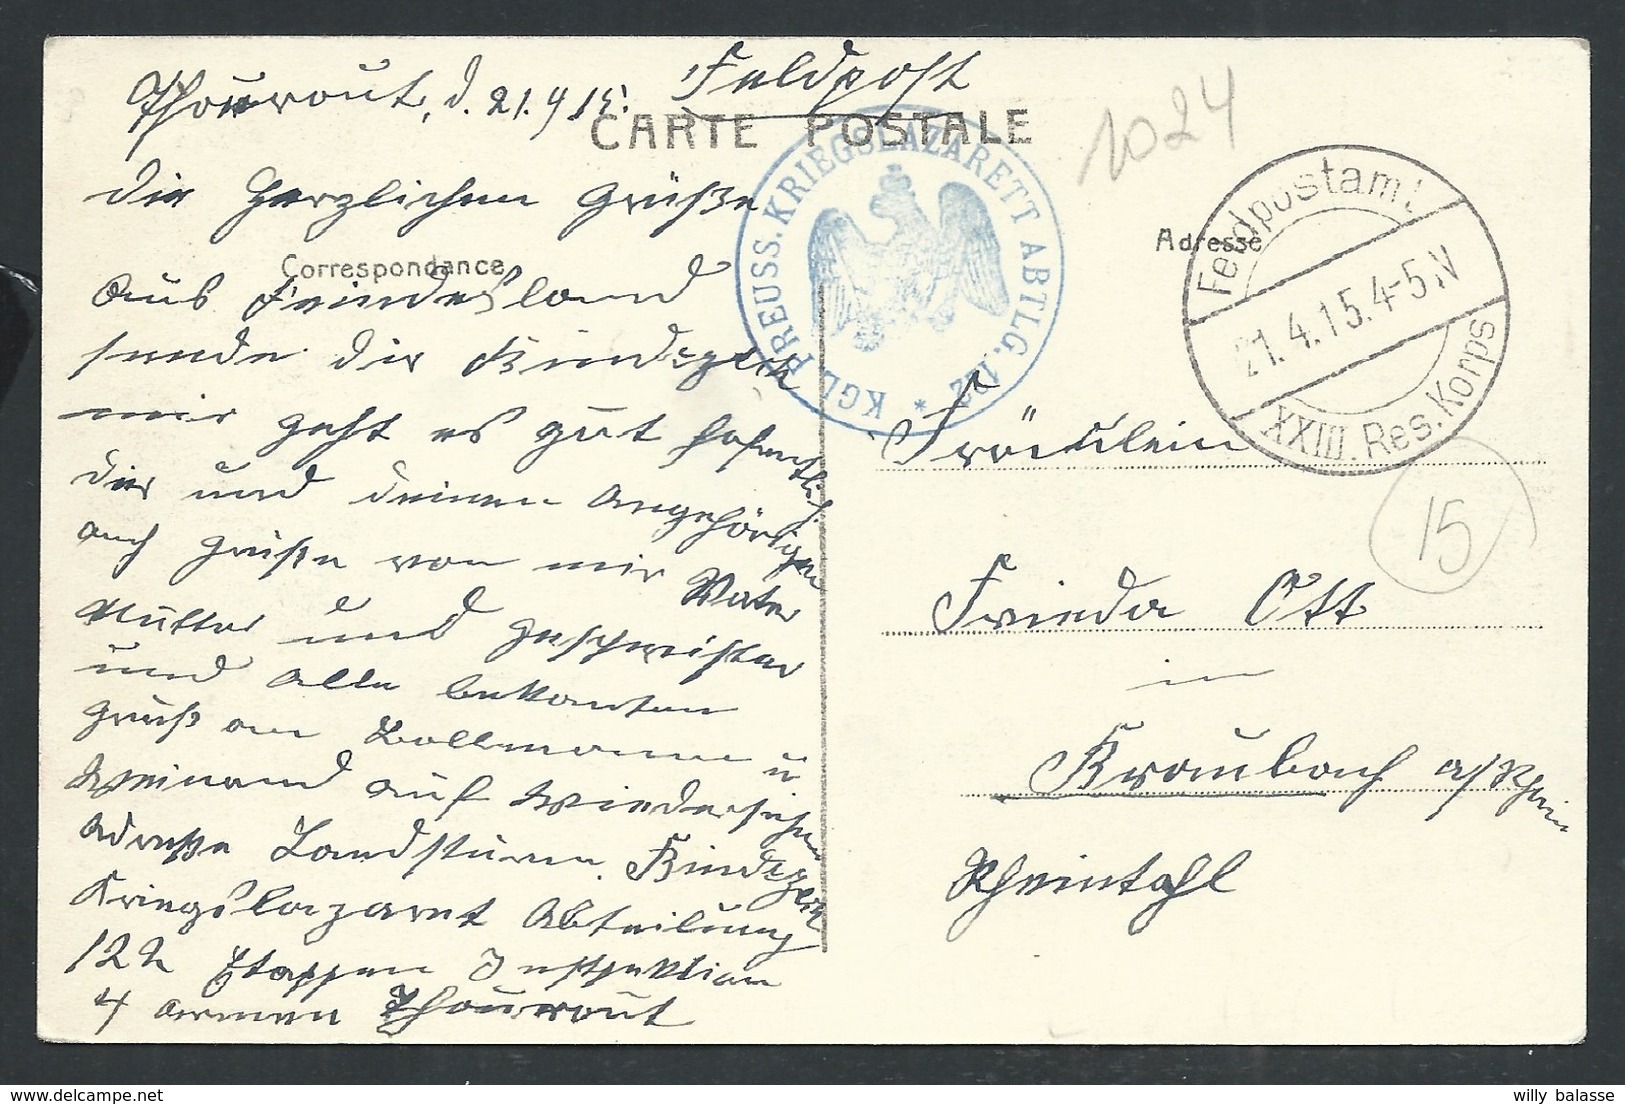 Thourout, d. 21.4.15. Feldpost
CARTE POSTALE
1024
die Herzlichen Grüße
Correspondance
aus Feindesland
sende dir
mir geht es gut hofentlich
dir und deinen Angehörigen
auch Grüße von mir Vater
Mutter und Geschwister
und alle bekanten
Gruß an u
Weinand auf Wiedersehen
Adresse Landsturm.
Kriegslazaret Abteilung
122 Etappen Inspektion
4 Armee Thourout
KGL. PREUSS. KRIEGSLAZARETT ABTLG. 122 *
Adresse
Feldpostamt
21.4.15.4-5N
XXIII. Res. Korps
15
Fräulein
Frieda Ott
in
Braubach a/Rhein
Rheintahl
willy balasse